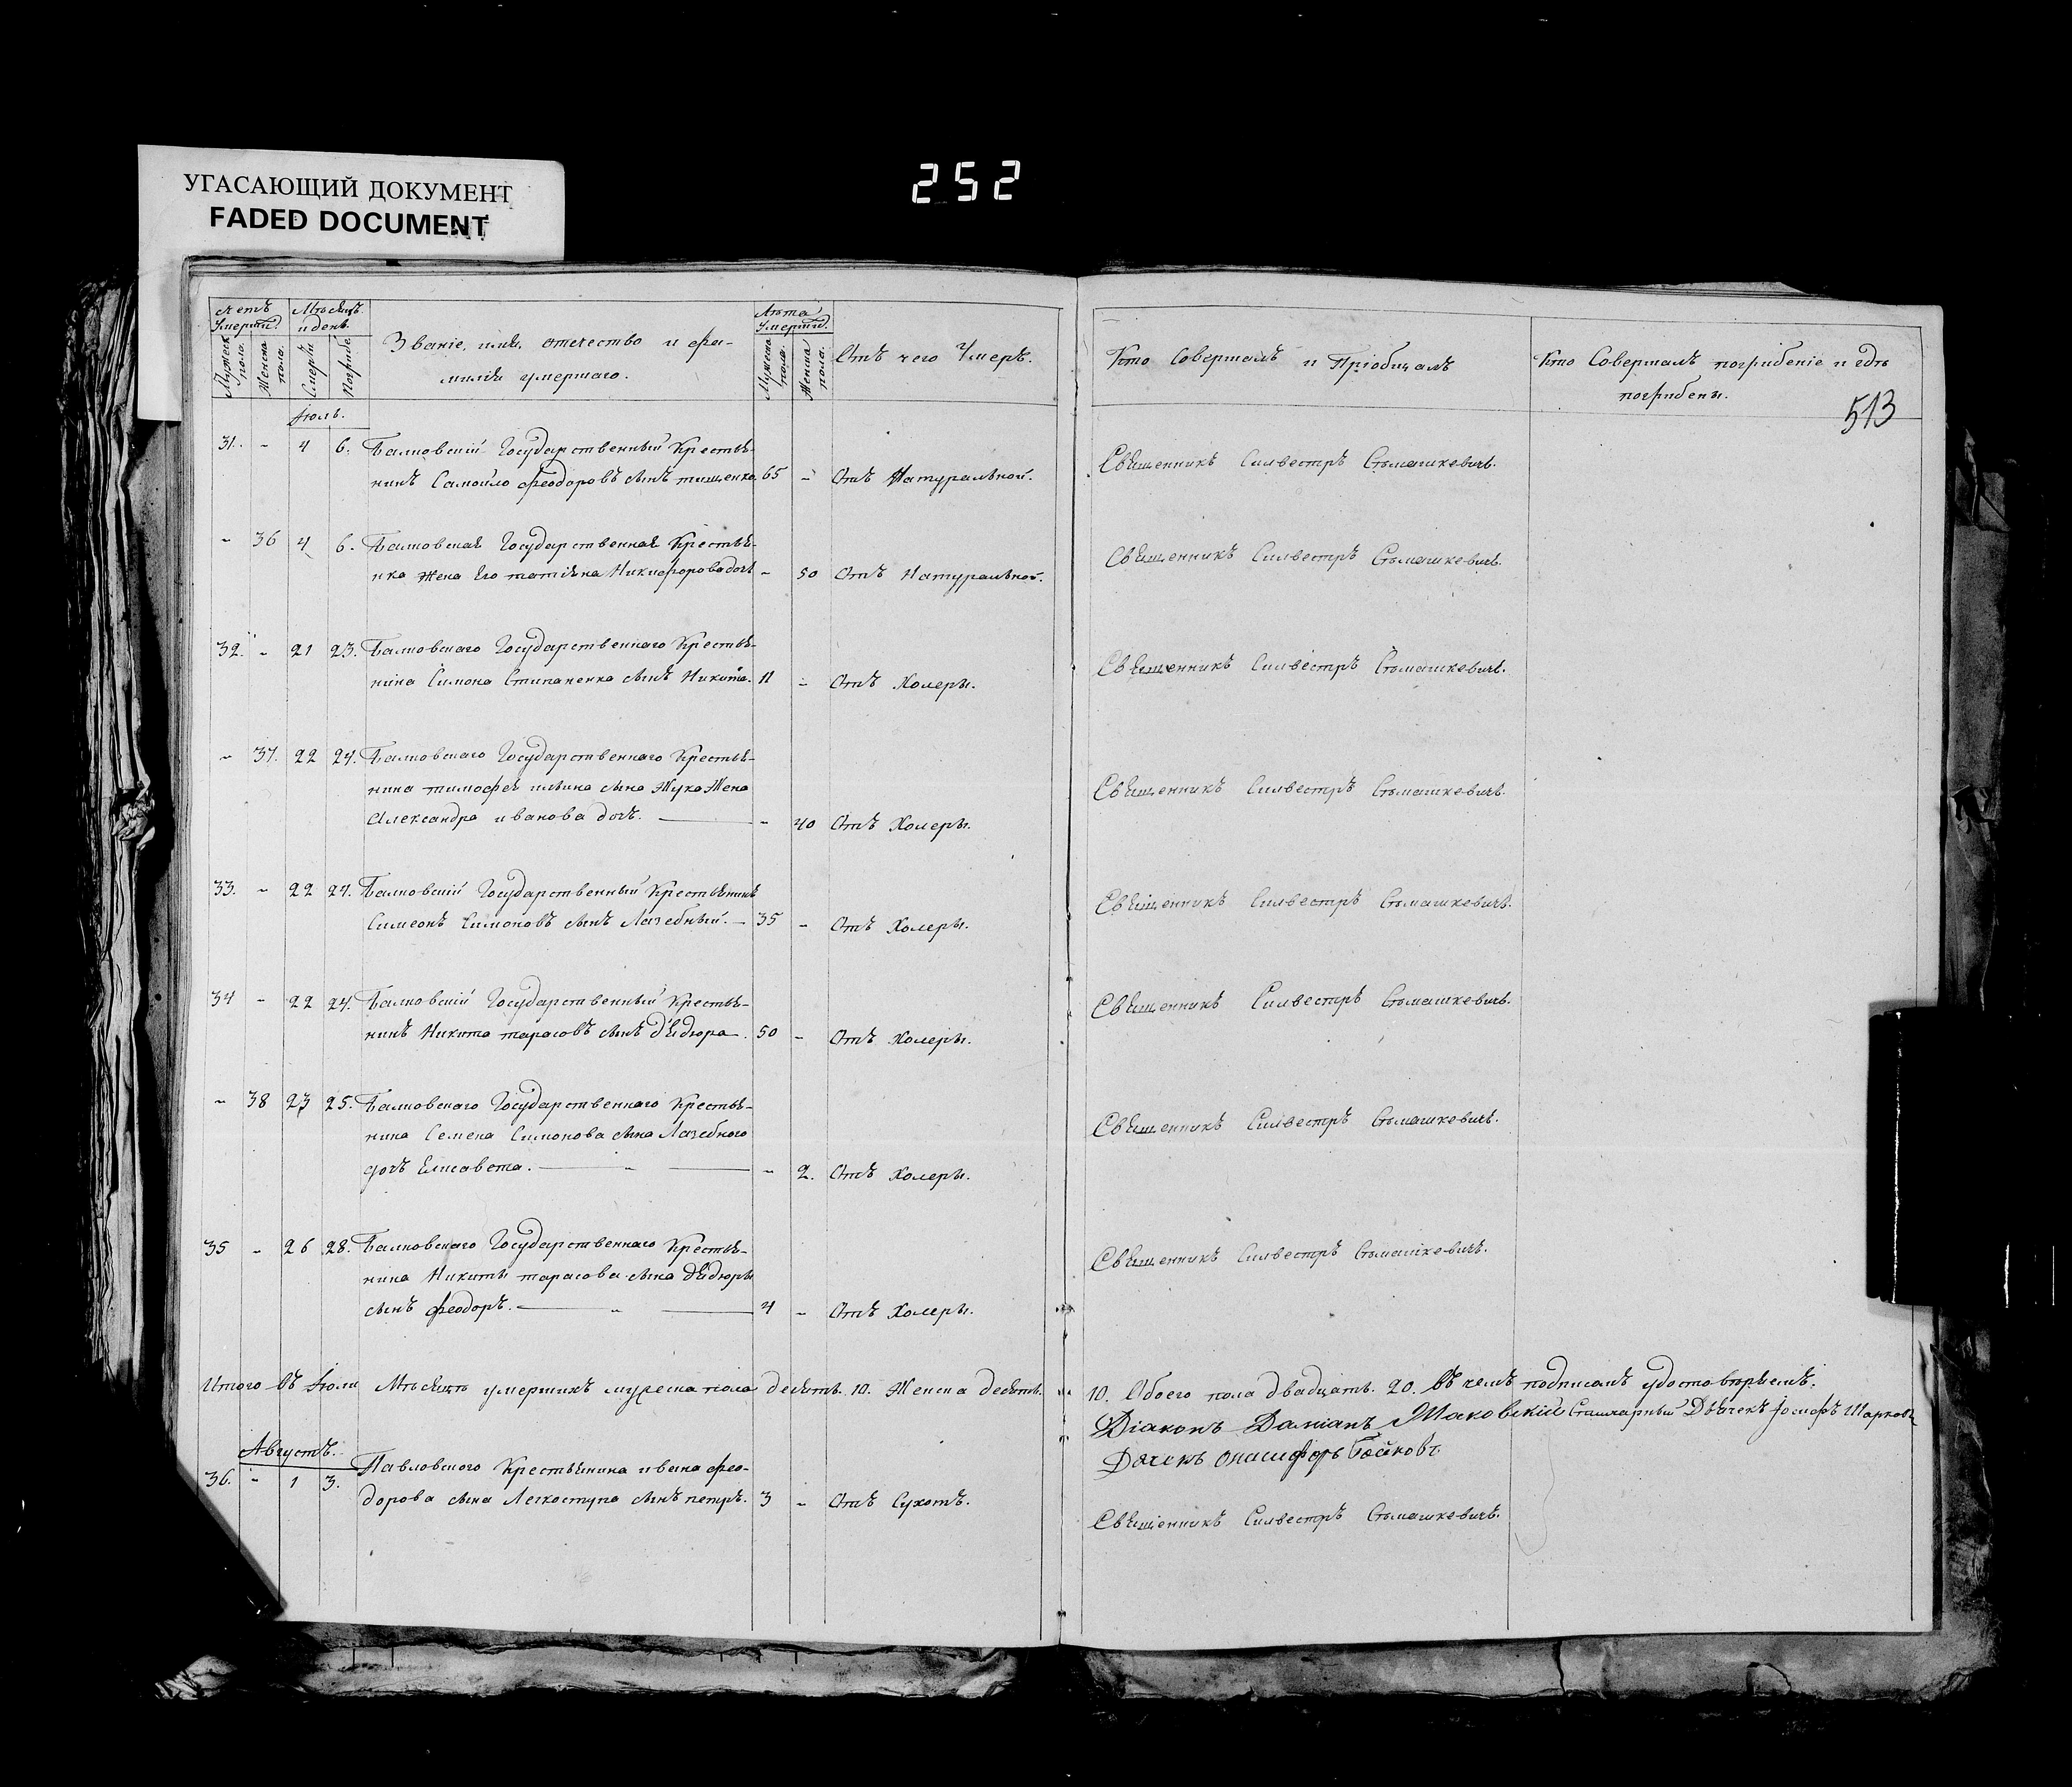 УГАСАЮЩИЙ ДОКУМЕНТ
FADED DOCUMENT
252
Мѣсяцъ и день.
Званіе, имя, отечество и фа-
милія умершаго.
Лѣта
Отъ чего Умеръ.
Кто Совершалъ и Пріобщалъ
Кто Совершалъ погрибеніе и гдѣ
погрибены.
513
Іюль.
31. - 4 6. Балковскій Государственный Крестья-
нинъ Самойло феодоровъ сынъ тищенко 65 - Отъ Натуральной. Священникъ Силвестръ Стымашкевичъ.
- 36 4 6. Балковская Государственная Крестья-
нка Жена Его татіяна Никифорова дочь - 50 Отъ Натуральной. Священникъ Силвестръ Стымашкевичъ.
32. - 21 23. Балковскаго Государственнаго Крестья-
нина Симона Стипаненка сынъ Никита. 11 - Отъ Холеры. Священникъ Силвестръ Стымашкевичъ.
- 37. 22 24. Балковскаго Государственнаго Крестья-
нина тимофея ильина сына Жука Жена
Александра иванова дочь. - 40 Отъ Холеры. Священникъ Силвестръ Стымашкевичъ.
33. - 22 24. Балковскій Государственный Крестьянинъ
Симеонъ Симоновъ сынъ Лазебный. - 35 - Отъ Холеры. Священникъ Силвестръ Стымашкевичъ.
34 - 22 24. Балковскій Государственный Крестья-
нинъ Никита тарасовъ сынъ дядюра. 50 - Отъ Холеры. Священникъ Силвестръ Стымашкевичъ.
- 38 23 25. Балковскаго Государственнаго Крестья-
нина Семена Симонова сына Лазебного
дочь Елисавета. - 2. Отъ Холеры. Священникъ Силвестръ Стымашкевичъ.
35 - 26 28. Балковскаго Государственнаго Крестья-
нина Никиты тарасова сына дядюры
сынъ феодоръ. 4 - Отъ Холеры. Священникъ Силвестръ Стымашкевичъ.
Итого въ Іюли Мѣсяцѣ умершихъ мужеска пола десять. 10. Женска десять. 10. Обоего пола двадцать. 20. въ чемъ подписомъ удостовѣряемъ.
Діаконъ Даміанъ Маковскій Дьячекъ Іосифъ
Дячекъ Онисифоръ
Августъ.
36. - 1 3. Павловского Крестьянина ивана фео-
дорова сына Легкоступа сынъ петръ. 3 - Отъ Сухотъ. Священникъ Силвестръ Стымашкевичъ.